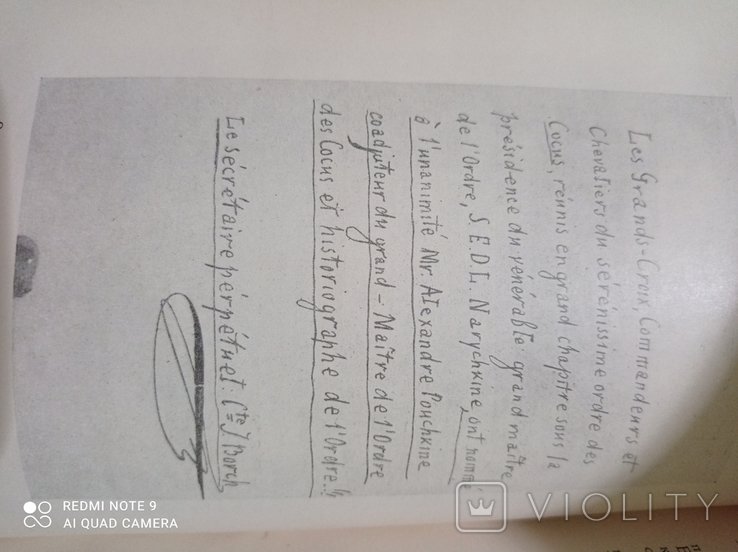 Les Grands-Croix, Commandeurs et
Chevaliers du sérénissime ordre des
Cocus, réunis en grand chapitre sous la
présidence du vénérable grand maître
de l'Ordre, S.E.D.L. Narychkine, ont nommé
à l'unanimité Mr. Alexandre Pouchkine
coadjuteur du grand-Maître de l'Ordre
des Cocus et historiographe de l'Ordre.
Le sécrétaire pérpétuel: Cte J Borch
REDMI NOTE 9
AI QUAD CAMERA
VIOLITY